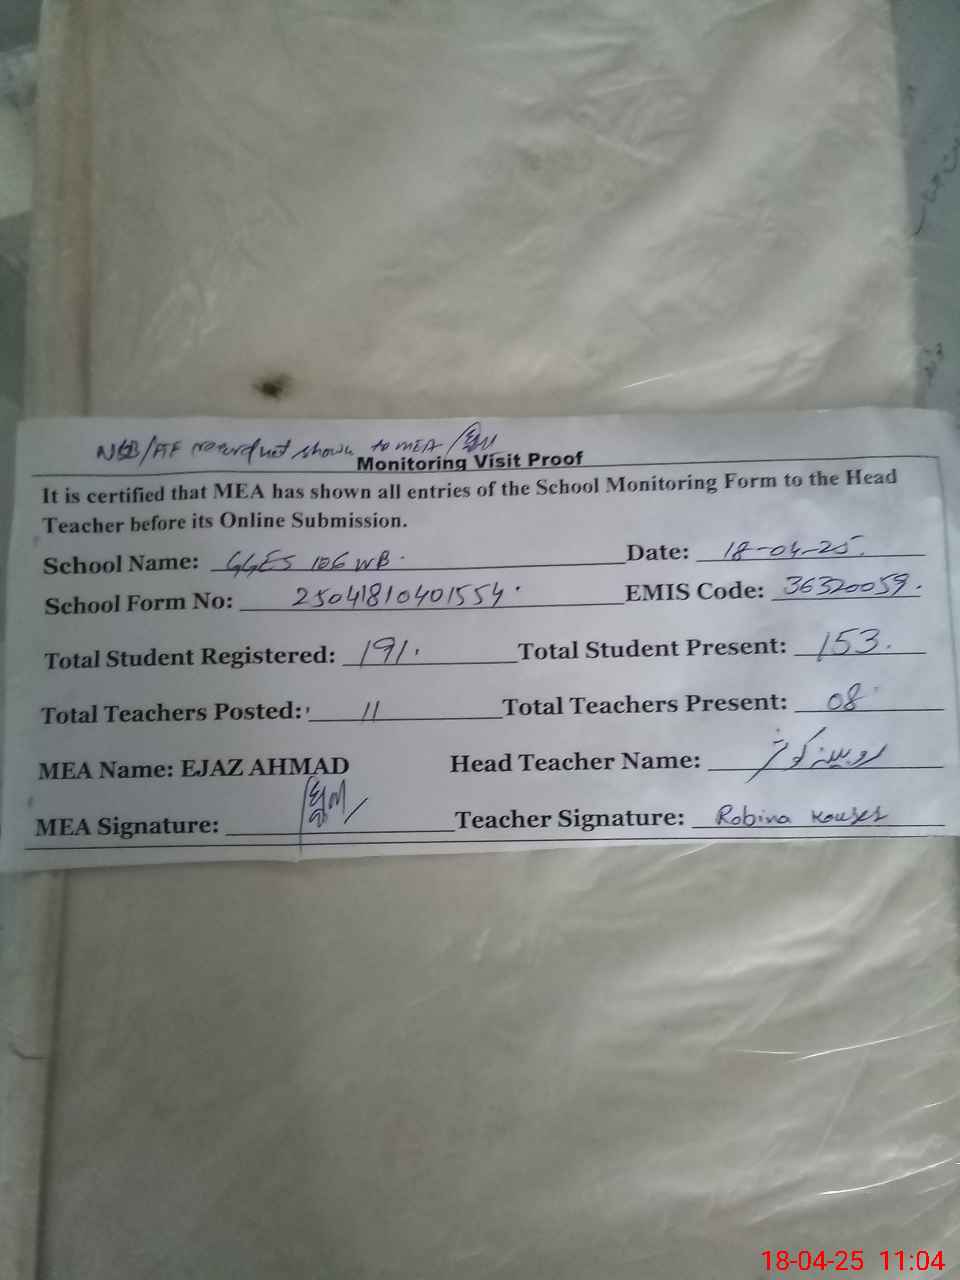 NSB/FTF record not shown to MEA
Monitoring Visit Proof
It is certified that MEA has shown all entries of the School Monitoring Form to the Head
Teacher before its Online Submission.
School Name: GGES 106 WB. Date: 18-04-25.
School Form No: 25041810401554. EMIS Code: 36320059.
Total Student Registered: 191. Total Student Present: 153.
Total Teachers Posted: 11 Total Teachers Present: 08
MEA Name: EJAZ AHMAD Head Teacher Name: روبینہ کوثر
MEA Signature: Teacher Signature: Robina Kouser
18-04-25 11:04